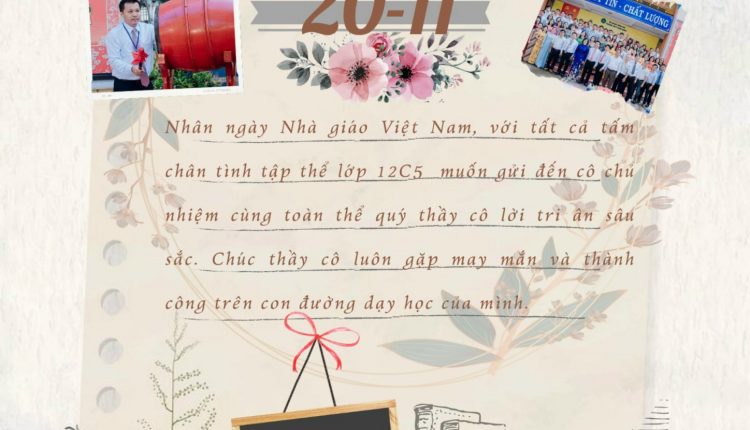 20-11
TÍN - CHẤT LƯỢNG
Nhân ngày Nhà giáo Việt Nam, với tất cả tấm
chân tình tập thể lớp 12C5 muốn gửi đến cô chủ
nhiệm cùng toàn thể quý thầy cô lời tri ân sâu
sắc. Chúc thầy cô luôn gặp may mắn và thành
công trên con đường dạy học của mình.